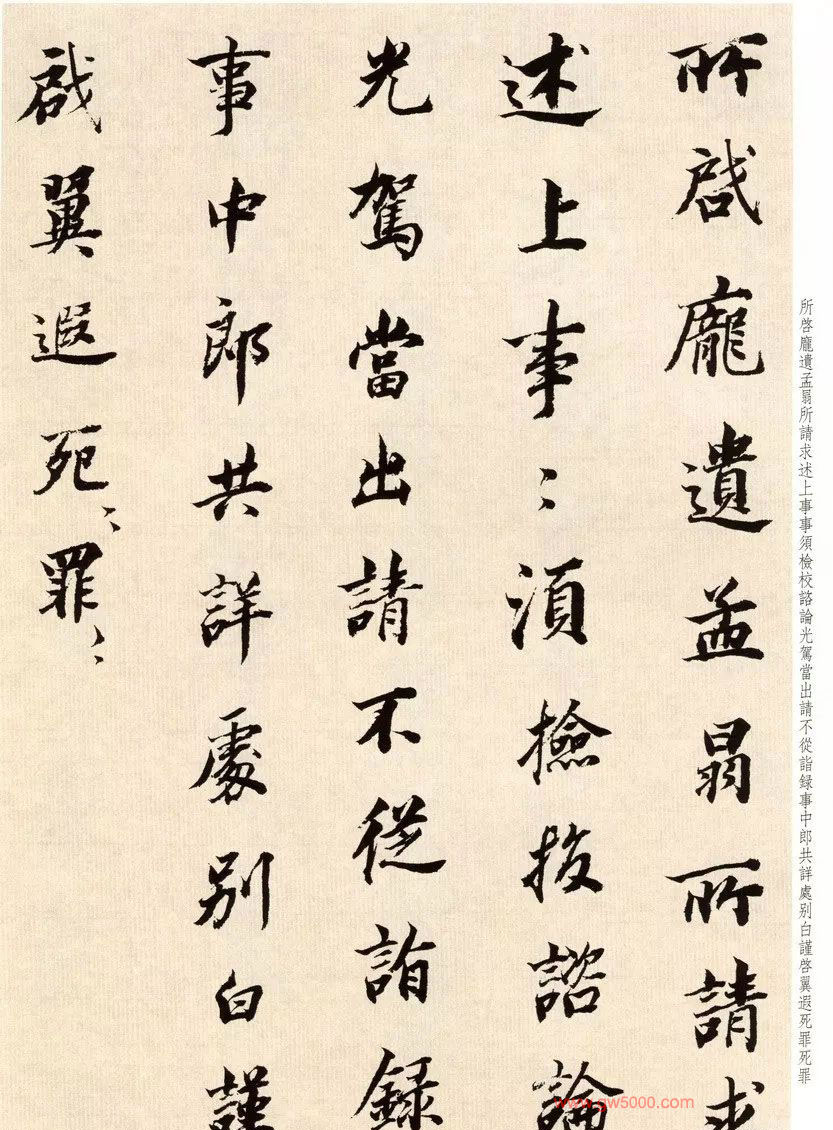 所啓龐遺孟昜所請求
述上事〻須檢校諮論
光駕當出請不從詣録
事中郎共詳處别白謹
啓翼遐死〻罪〻
所啓龐遺孟昜所請求述上事事須檢校諮論光駕當出請不從詣録事中郎共詳處别白謹啓翼遐死罪死罪
www.gw5000.com